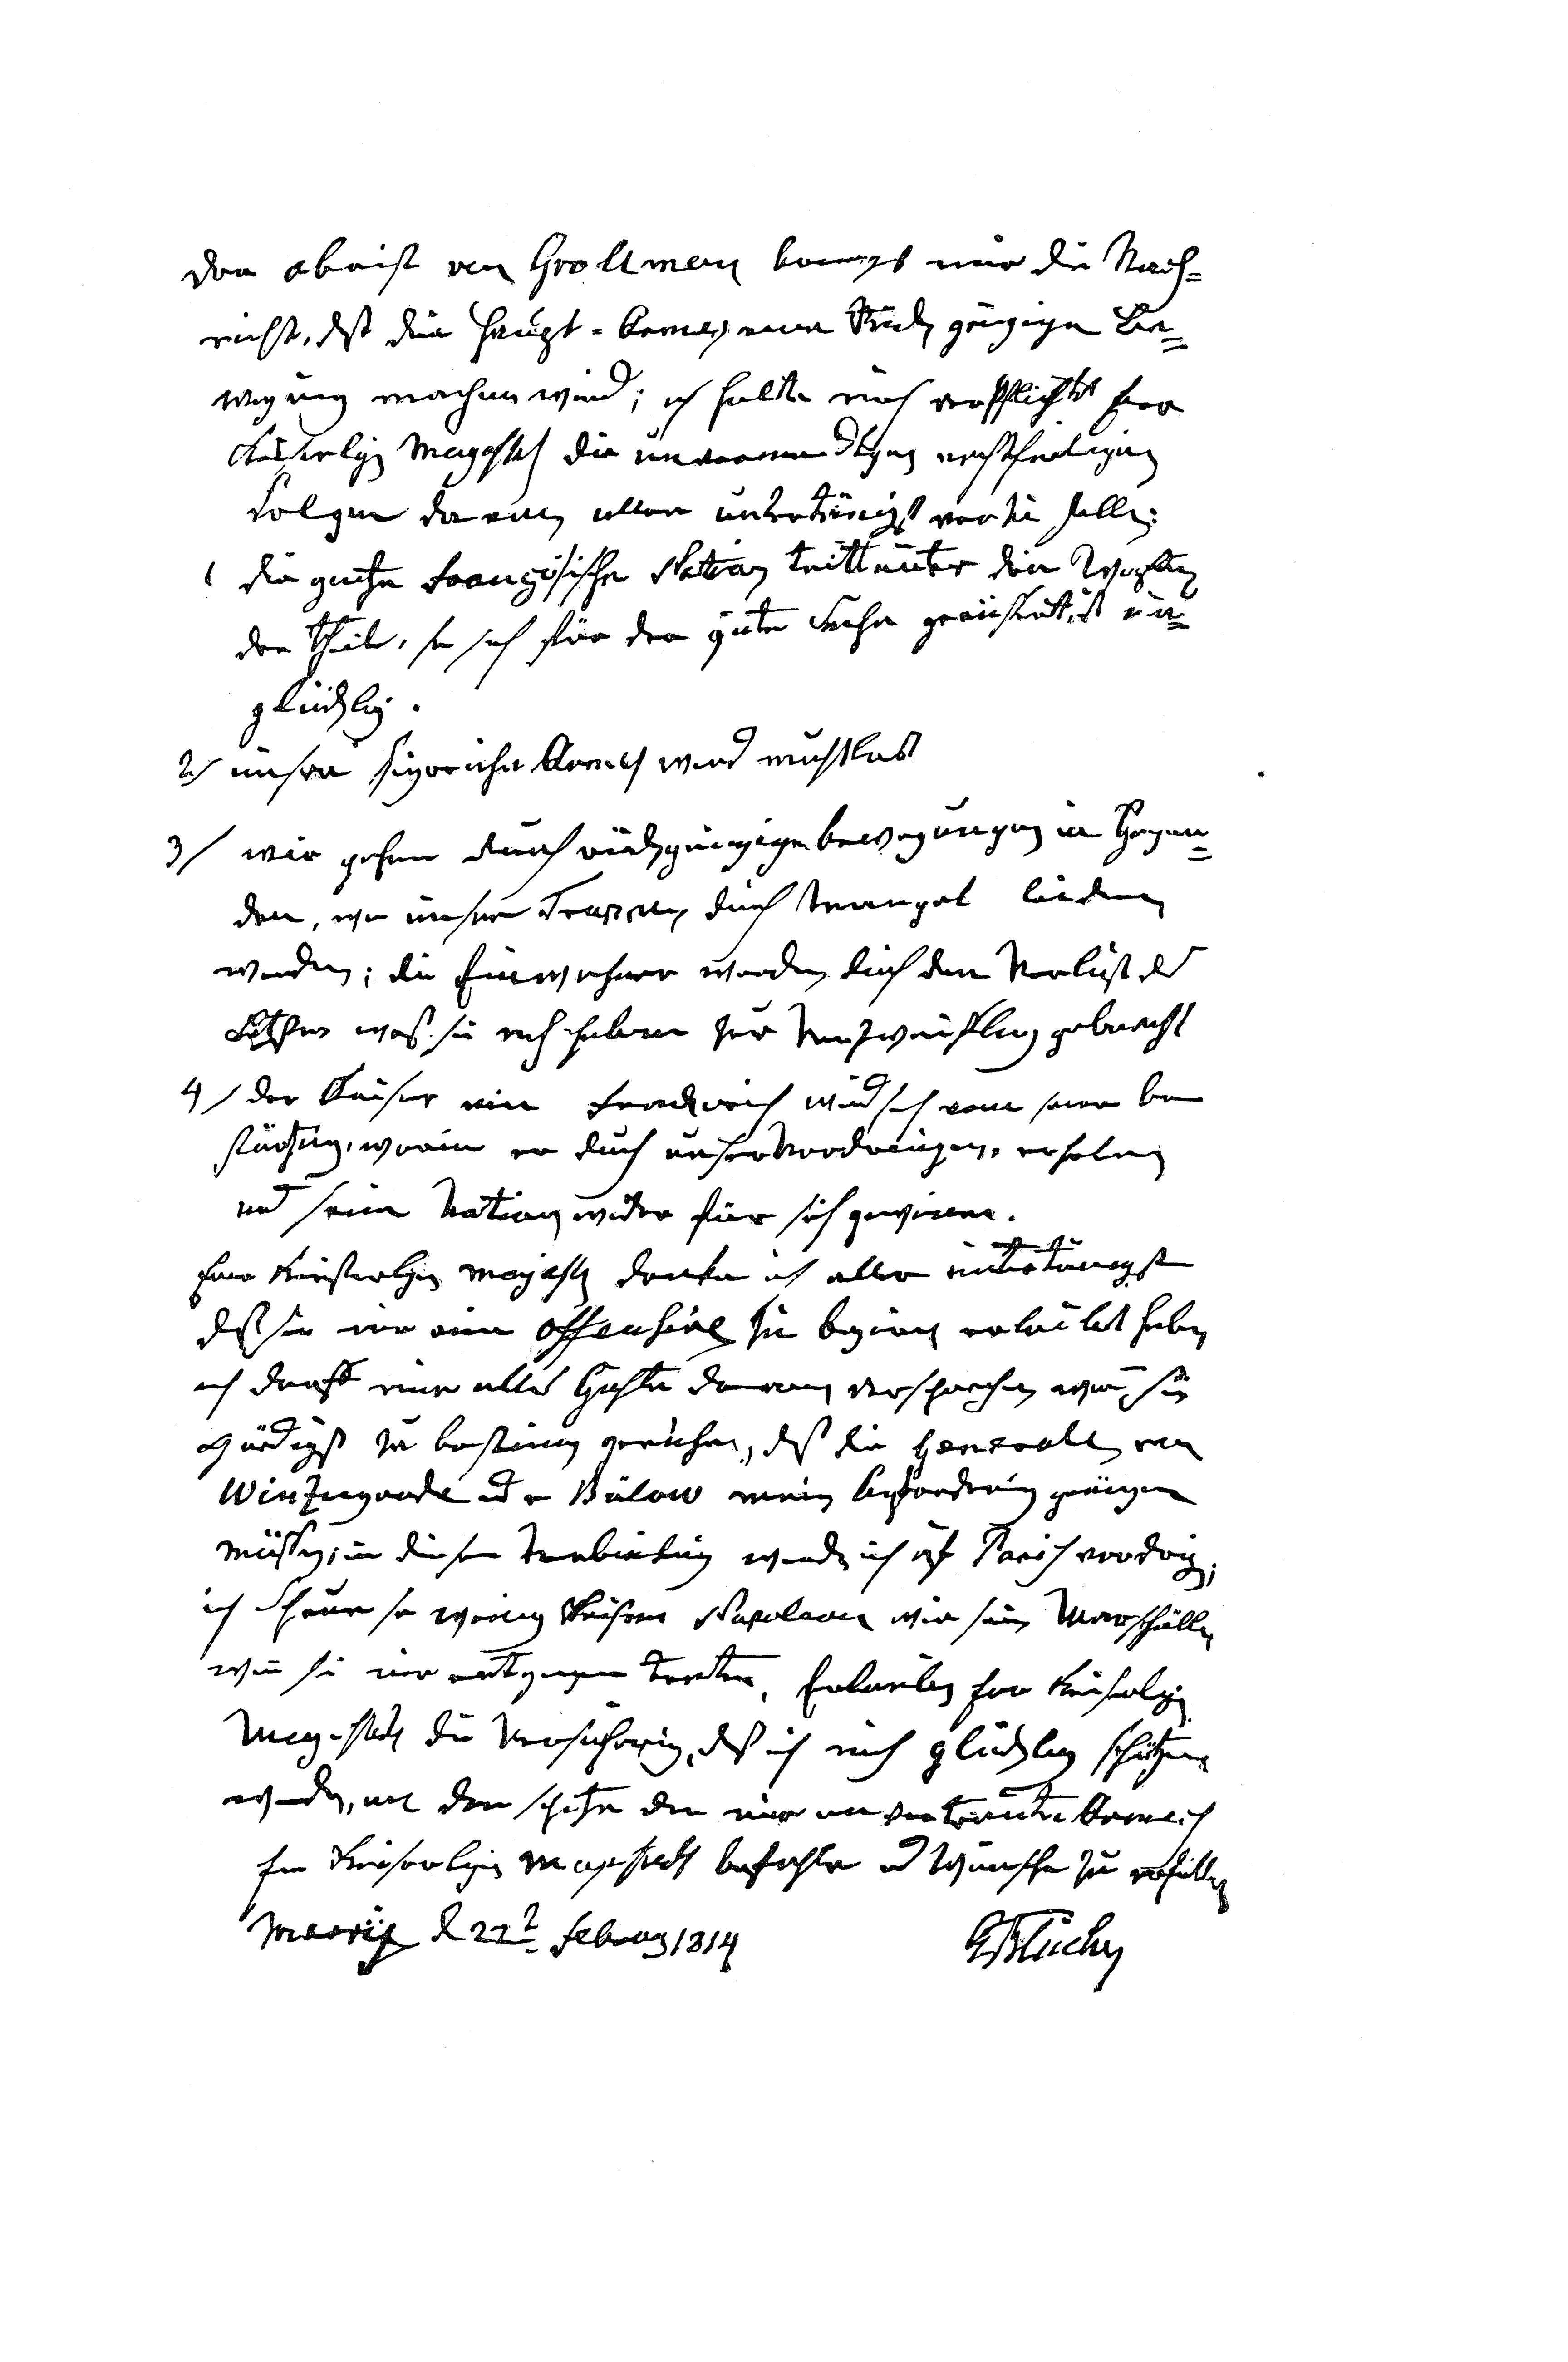 der oberist von Grollman bringt mir die Nach=
richt, dßt die Haupt=Armeh eine Rück gängige Be=
wegung machen wird; ich halte mich verpflicht Euer
Kaiserligen Mayesteh die unvermeidligen nachtheiligen
Folgen da von aller untertänigst vor zu stellen:
1 die gantze Französische Nation tritt unter die Waffen
der Theil, so sich für der gute Sache geäußert, ist un=
glücklig.
2/ unsere sigreiche Armeh wird muhtlos
3/ wir gehen durch rückgängige bewegungen in Gegen=
den, wo unsere Truppen durch Mangel leiden
werden; die Einwohner werden durch den Verlust des
letzten was sie noch haben zur Verzweiflung gebracht
4/ der Kaiser von Franckreich wird sich von seiner be
stürtzung, worin er durch unser Vordringen, erholen
und seine Nation wider für sich gewinnen.
Euer Kaiserligen Mayesteh danke ich aller untertänigst
daß sie mir eine offensive zu beginnen erlaubt haben
ich darf mir alles Guhte davon versprechen wen sie
gnädigst zu bestimmen geruhen, daß die Generalle von
Winzingerode und v Bülow meiner aufforderung genügen
müssen; in dieser Verbindung werde ich auf Paris vordringen;
ich scheue so wenig Kaiser Napoleon wie seine Marschälle
wen sie mir entgegen treten, Erlauben Euer Kaiserligen
Mayesteh die Versicherung, daß ich mich glücklig schätzen
werde, an der spitze der mir anvertrauten Armeh
Euer Kaiserligen Mayesteh befehle und Wünsche zu erfüllen
d 22t February 1814 GBlücher